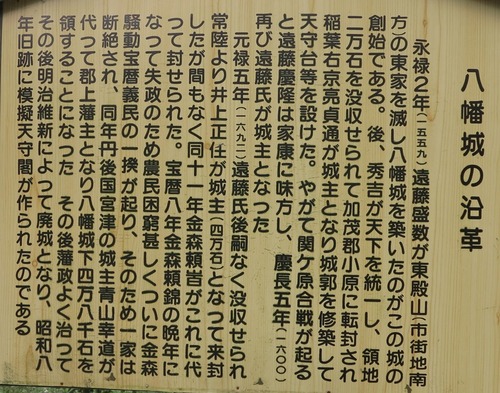 八幡城の沿革
永禄２年（一五五九）遠藤盛数が東殿山（市街地南
方）の東家を滅し八幡城を築いたのがこの城の
創始である。後、秀吉が天下を統一し、領地
二万石を没収せられて加茂郡小原に転封され
稲葉右京亮貞通が城主となり城郭を修築して
天守台等を設けた。やがて関ケ原合戦が起る
と遠藤慶隆は家康に味方し、慶長五年（一六〇〇）
再び遠藤氏が城主となった
元禄五年（一六九二）遠藤氏後嗣なく没収せられ
常陸より井上正任が城主（四万石）となつて来封
したが間もなく同十一年金森頼旹がこれに代
つて封せられた。宝暦八年金森頼錦の晩年に
なって失政のため農民困窮甚しくついに金森
騒動宝暦義民の一揆が起り、そのため一家は
断絶され、同年丹後国宮津の城主青山幸道が
代つて郡上藩主となり八幡城下四万八千石を
領することになった　その後藩政よく治つて
その後明治維新によって廃城となり、昭和八
年旧跡に模擬天守閣が作られたのである